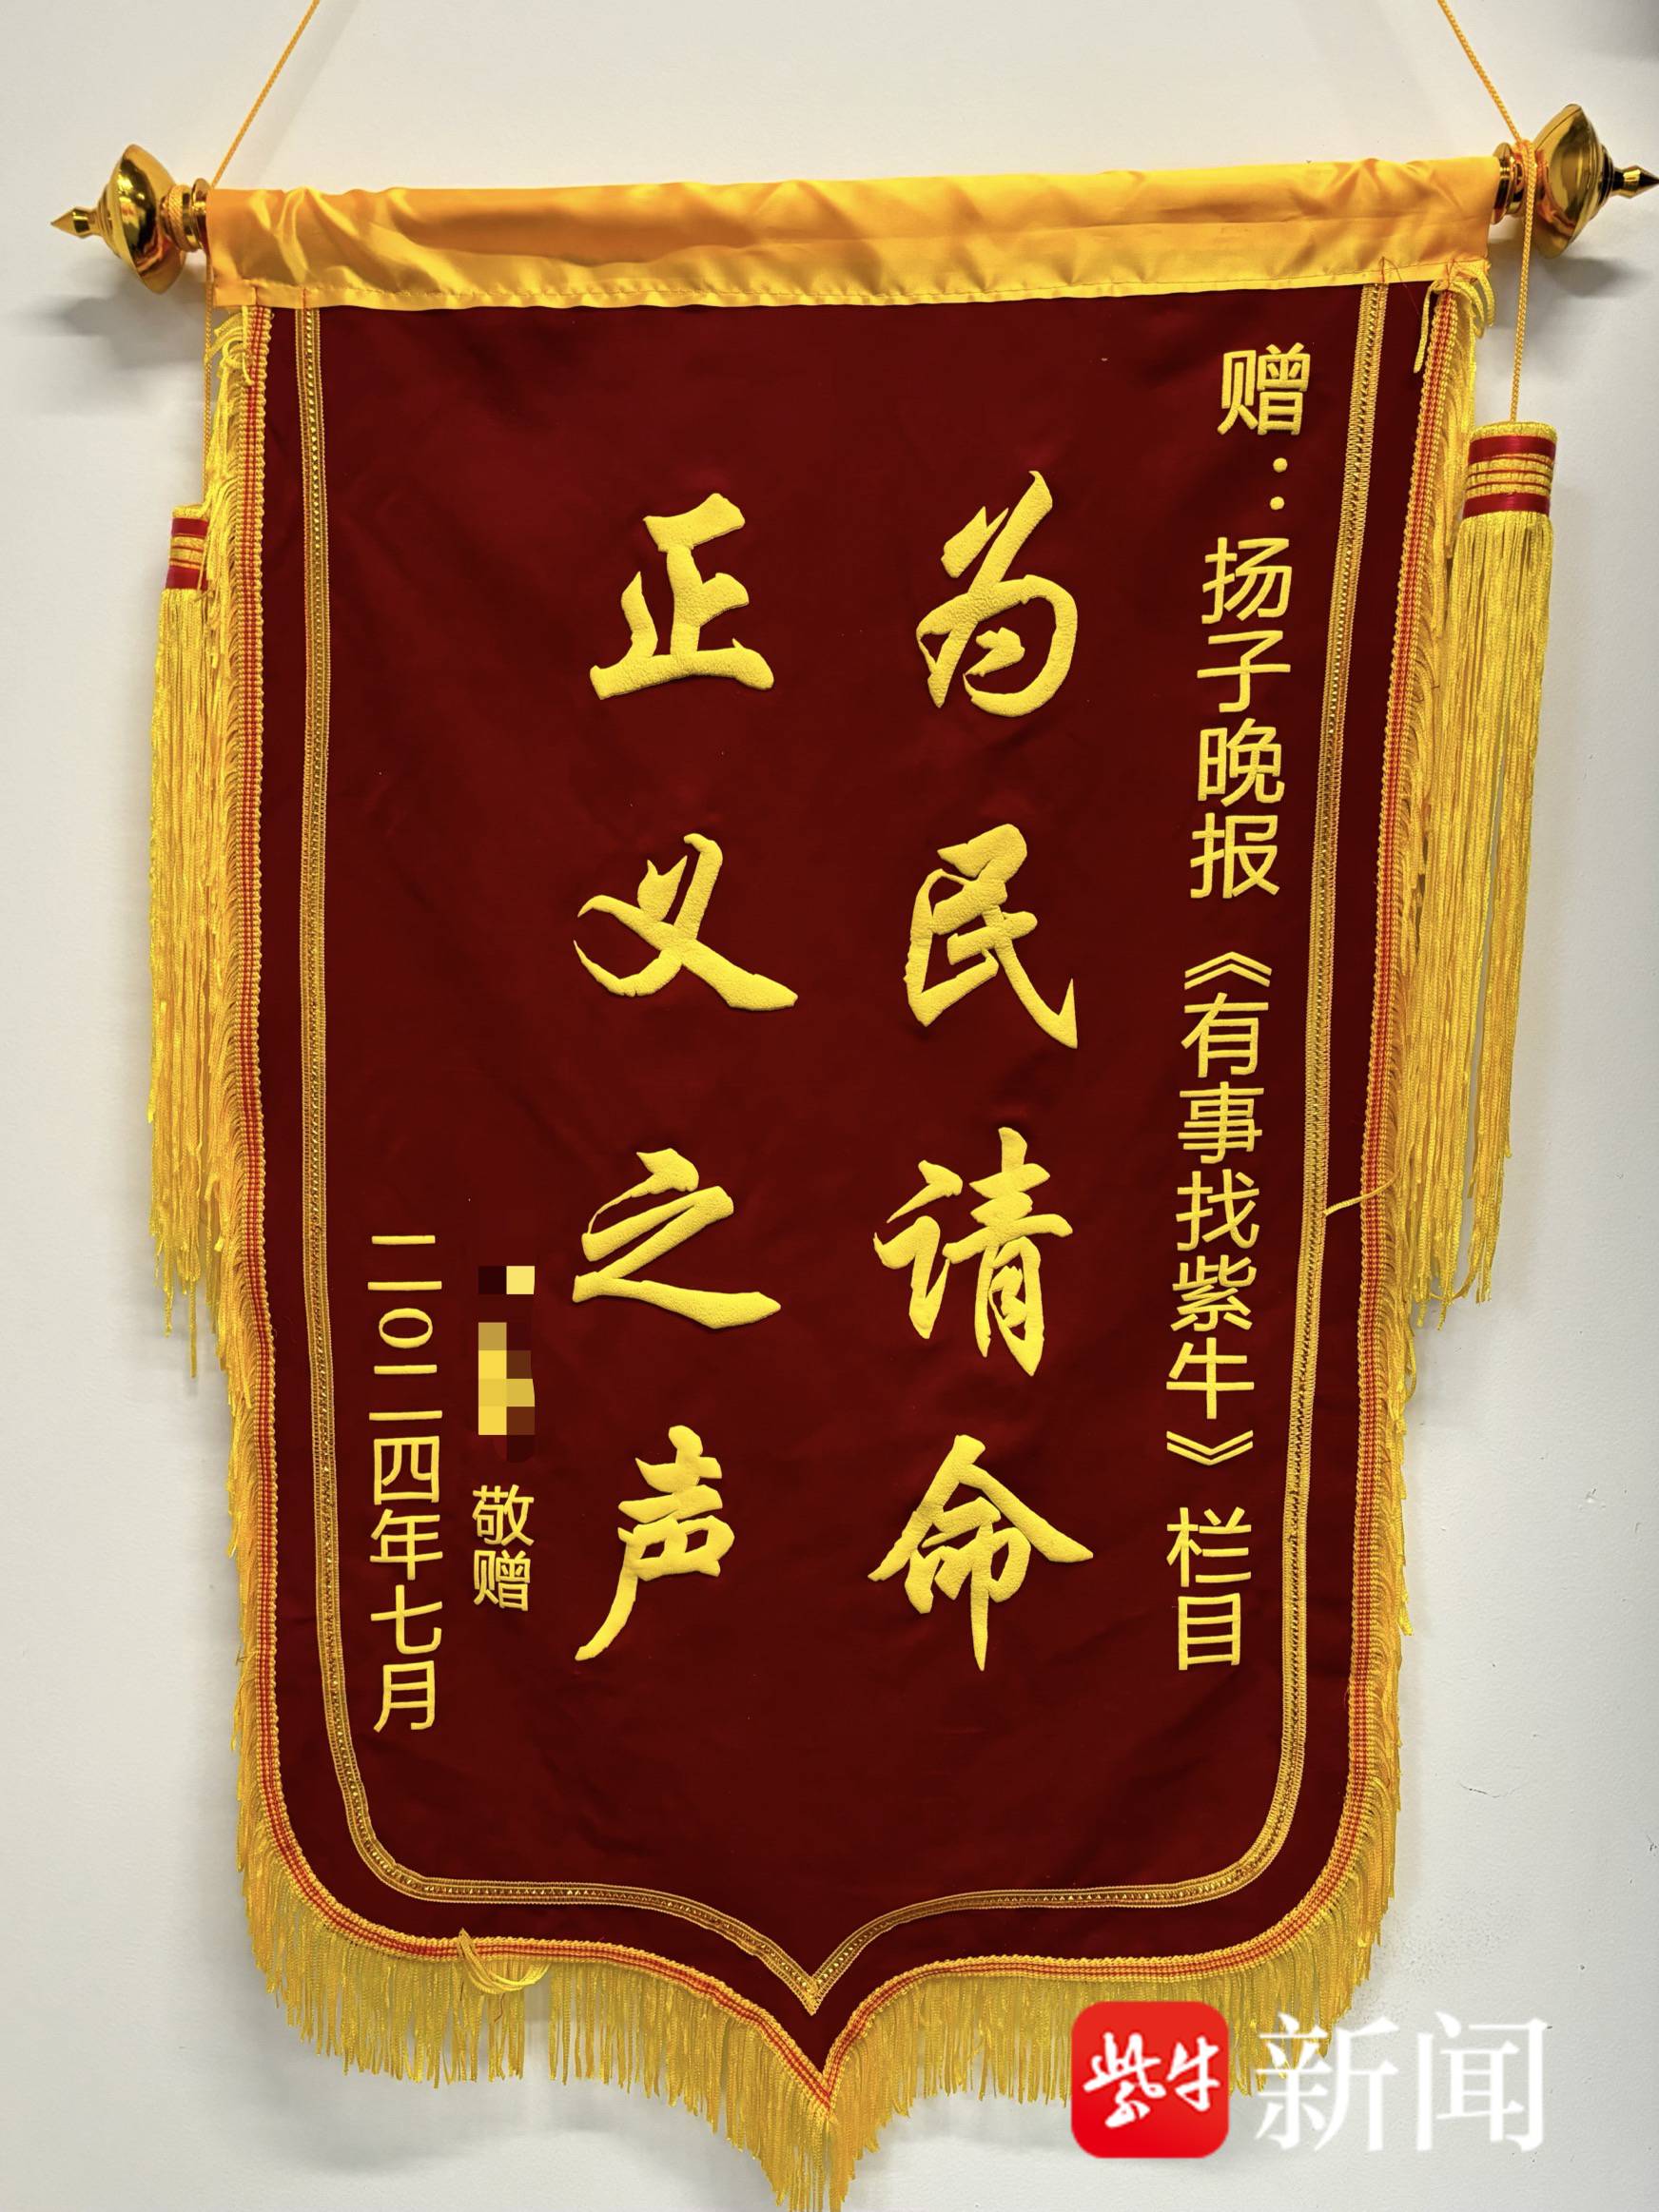 赠：扬子晚报《有事找紫牛》栏目
为民请命
正义之声
敬赠
二〇二四年七月
紫牛新闻